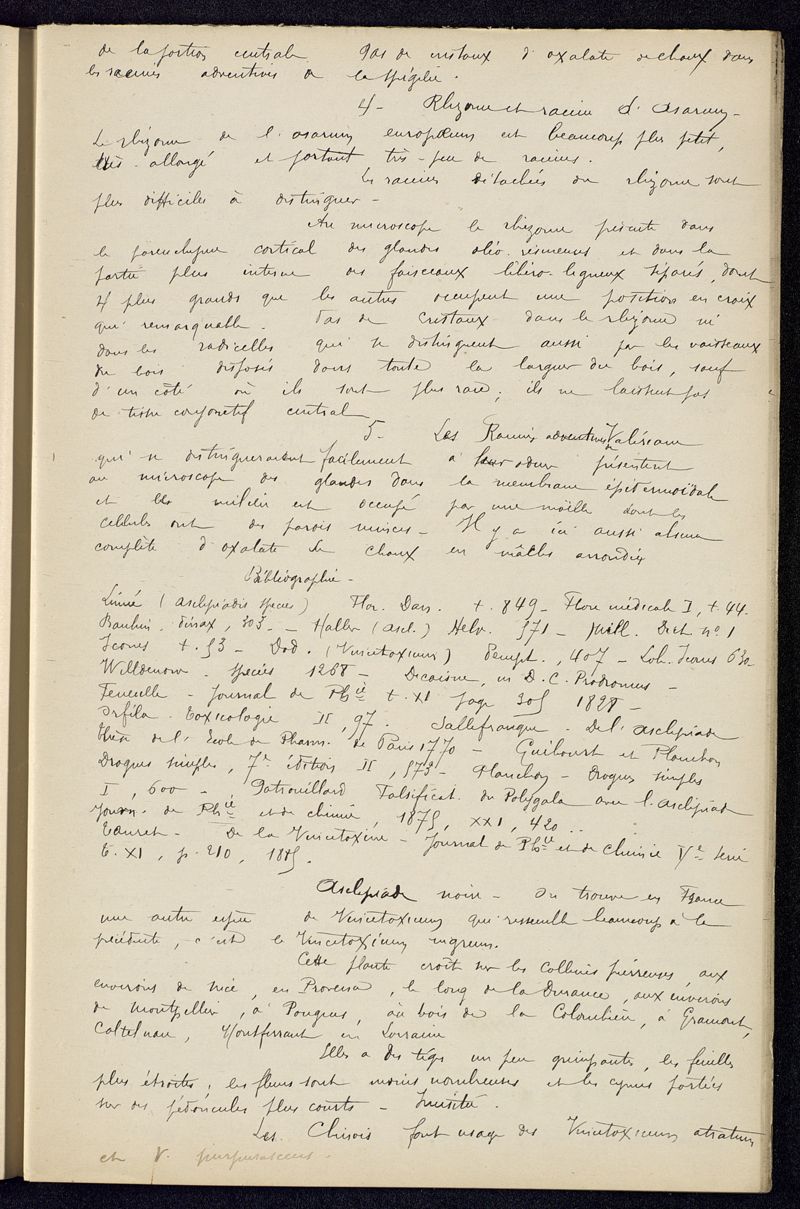 de la portion centrale Pas de cristaux d'oxalate de chaux dans
les racines adventives de la spigélie.
4- Rhizome et racine d'Asarum-
Le rhizome de l'asarum europaeum est beaucoup plus petit,
très allongé et portant très-peu de racines.
Les racines détachées du rhizome sont
plus difficiles à distinguer-
Au microscope le rhizome présente dans
le parenchyme cortical des glandes oléo-résineuses et dans la
partie plus interne des faisceaux libéro-ligneux séparés, dont
4 plus grands que les autres occupent une position en croix
qui remarquable. Pas de cristaux dans le rhizome ni
dans les radicelles qui se distinguent aussi par les vaisseaux
du bois disposés dans toute la largeur du bois, sauf
d'un côté où ils sont plus rares; ils ne laissent pas
de tissu conjonctif central
5. Les Racines adventives Valériane
qui se distingueraient facilement à leur odeur présentent
au microscope des glandes dans la membrane épidermoïdale
et le milieu est occupé par une moëlle dont les
cellules ont des parois minces- Il y a ici aussi absence
complète d'oxalate de chaux en mâcles arrondies
Bibliographie-
Linné (asclepiadis species) Flor. Dan. t. 849- Flore médicale I, t. 44.
Bauhin, 303- Haller (Ascl.) Helv. 571- Dict. n° 1
Icones t. 53- Dod. (Vincetoxicum) Pempt., 407- Lob. Icones 630
Willdenow. species 1268- Decaisne, in D.C. Prodromus-
Feneulle- Journal de Phcie t. XI page 305 1828-
Orfila. Toxicologie II, 97. Sallefranque- De l'asclépiade
thèse de l'Ecole de Pharm. de Paris 1770- Guibourt et Planchon
Drogues simples, 7e édition II, 573- Planchon- Drogues simples
I, 600- Patrouillard Falsificat. du Polygala avec l'asclépiade
Journ. de Phcie et de chimie, 1875, XXI, 420..
Tanret- De la Vincetoxine- Journal de Phcie et de Chimie Ve série
t. XI, p. 210, 1885.
Asclépiade noire- On trouve en France
une autre espèce de Vincetoxicum qui ressemble beaucoup à la
précédente, c'est le Vincetoxicum nigrum.
Cette plante croît sur les collines pierreuses, aux
environs de Nice, en Provence, le long de la Durance, aux environs
de Montpellier, à Pougues, au bois de la Colombière, à Gramont,
Castelnau, Montferrant en Lorraine
Elle a des tiges un peu grimpantes, les feuilles
plus étroites, les fleurs sont moins nombreuses et les cymes portées
sur des pédoncules plus courts- Inusité.
Les Chinois font usage des Vincetoxicum atratum
et V. purpurascens.